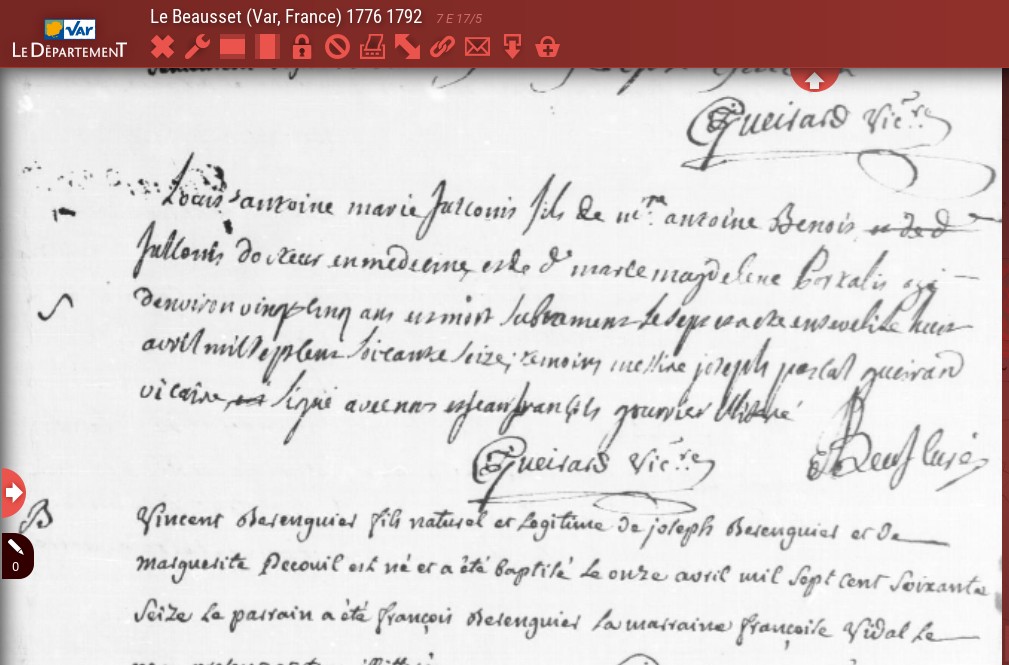 Le Beausset (Var, France) 1776 1792 7 E 17/5
Var
LE DÉPARTEMENT
Gueirard Vic.re
Louis antoine marie Jullonis fils de m.re antoine Benois et de d
S
Jullonis docteur en medecine, et de d.e marie magdelene Portalis agé
d'environ vingt cinq ans est mort subitament le sept et a ete enseveli le huit
avril mil sept cens soixante seize; temoins messire joseph pascal gueirard
vicaire et signé avec nous et jean françois gournier illitteré
Gueirard Vic.re
Beuf curé
B
Vincent Berenguier fils naturel et legitime de joseph Berenguier et de
marguerite Decouil est né et a été baptisé Le onze avril mil sept cent soixante
0
seize Le parrain a été françois Berenguier La marraine françoise Vidal Le